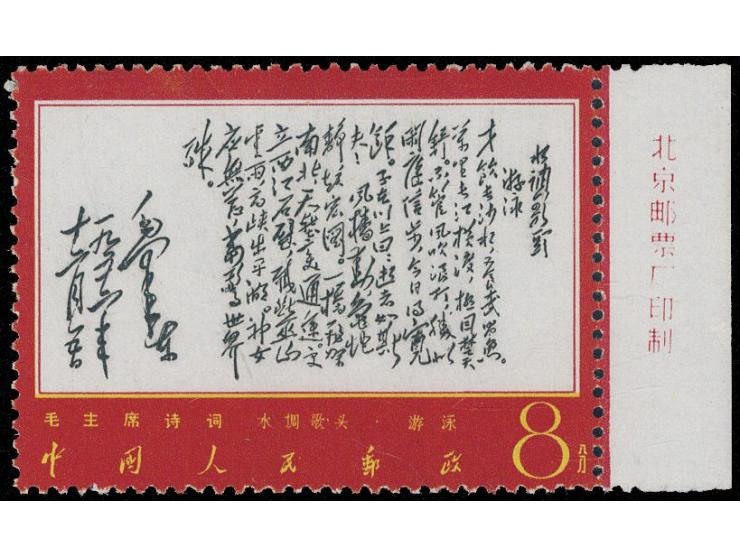 水调歌头
游泳
才饮长沙水，又食武昌鱼。
万里长江横渡，极目楚天
舒。不管风吹浪打，胜似
闲庭信步，今日得宽
馀。子在川上曰：逝者如斯
夫！风樯动，龟蛇
静，起宏图。一桥飞架
南北，天堑变通途。更
立西江石壁，截断巫山
云雨，高峡出平湖。神女
应无恙，当惊世界
殊。
毛泽东
一九五六年
十二月五日
毛主席诗词 水调歌头·游泳
中國人民郵政 8分
北京邮票厂印制